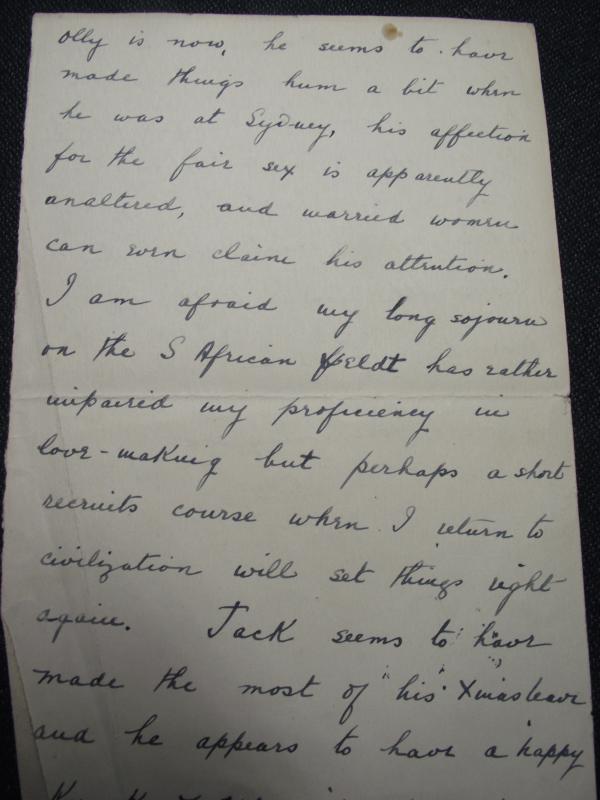 olly is now, he seems to have
made things hum a bit when
he was at Sydney, his affection
for the fair sex is apparently
unaltered, and married women
can even claim his attention.
I am afraid my long sojourn
on the S African veldt has rather
impaired my proficiency in
love-making but perhaps a short
recruits course when I return to
civilization will set things right
again. Jack seems to have
made the most of his Xmas leave
and he appears to have a happy